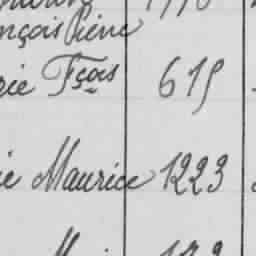 nçois Pierre
rie Fçois 615
ie Maurice 1223